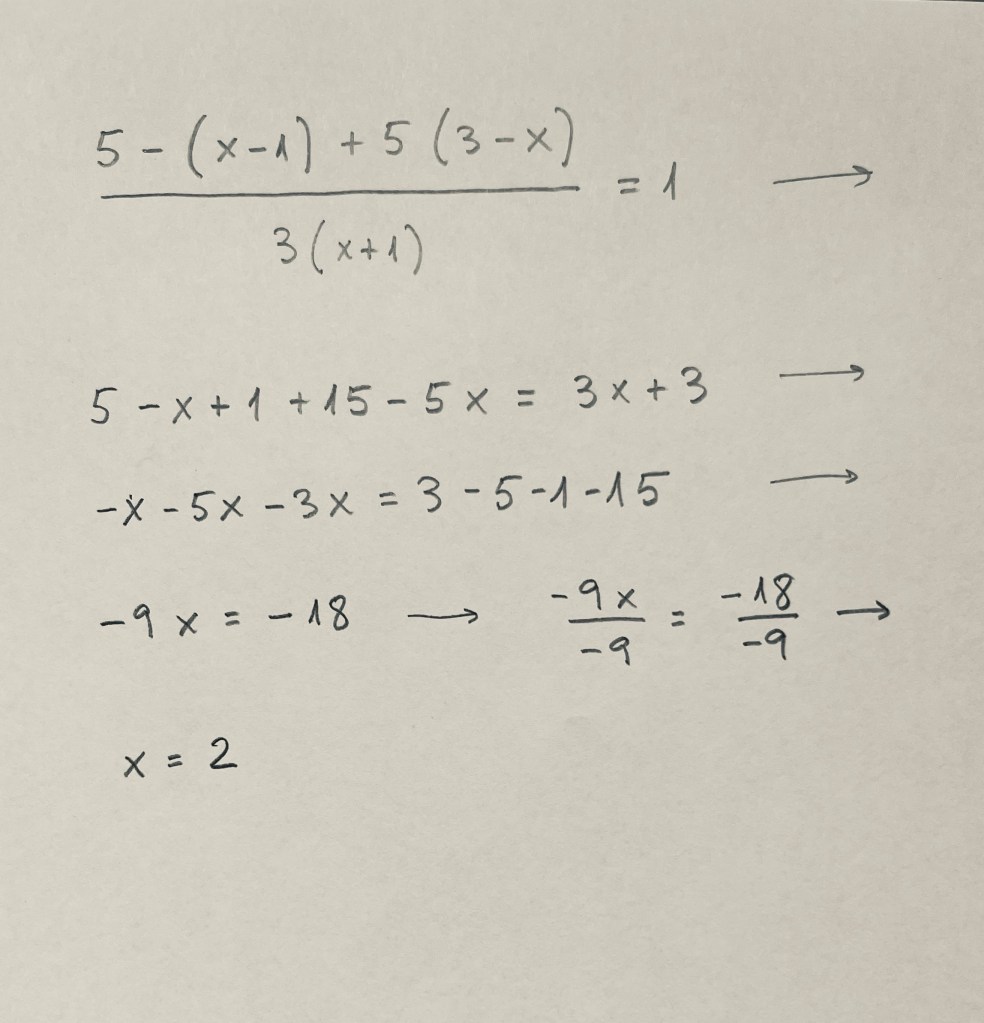 5 - (x-1) + 5 (3-x)
3(x+1)
= 1 ⟶
5 - x + 1 + 15 - 5x = 3x + 3 ⟶
-x - 5x - 3x = 3 - 5 - 1 - 15 ⟶
-9x = -18 ⟶ -9x/-9 = -18/-9 ⟶
x = 2